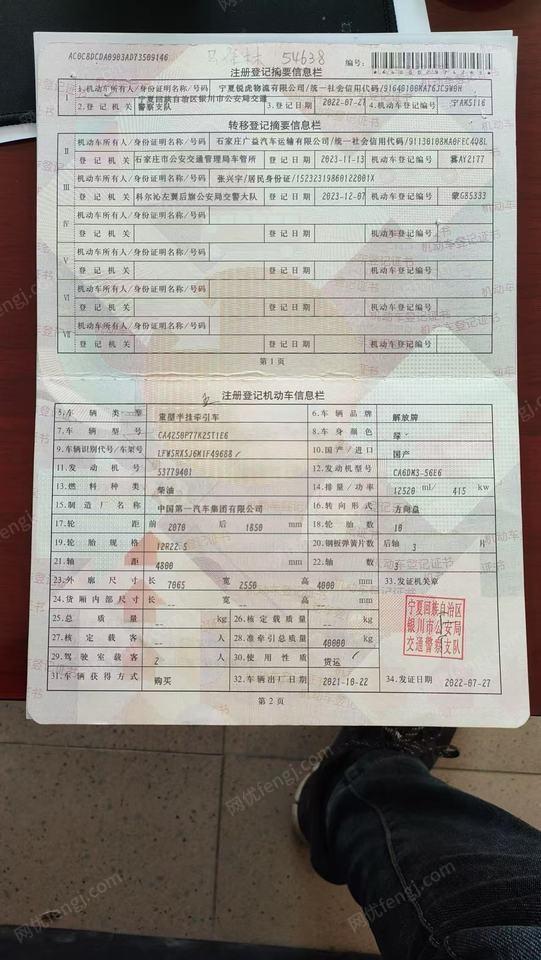 AC0C8DCDA0903AD73509146
54638
编号:
注册登记摘要信息栏
I
1.机动车所有人/身份证明名称/号码 宁夏锐虎物流有限公司/统一社会信用代码/91640100MA76JC9W0H
2.登记机关 宁夏回族自治区银川市公安局交通警察支队 3.登记日期 2022-07-27 4.机动车登记编号 宁AK5116
转移登记摘要信息栏
II
机动车所有人/身份证明名称/号码 石家庄广益汽车运输有限公司/统一社会信用代码/91130108MA0FEC4Q8L
登记机关 石家庄市公安交通管理局车管所 登记日期 2023-11-13 机动车登记编号 冀AY2177
III
机动车所有人/身份证明名称/号码 张兴宇/居民身份证/15232319860122001X
登记机关 科尔沁左翼后旗公安局交警大队 登记日期 2023-12-07 机动车登记编号 蒙G85333
IV
机动车所有人/身份证明名称/号码
登记机关 登记日期 机动车登记编号
V
机动车所有人/身份证明名称/号码
登记机关 登记日期 机动车登记编号
VI
机动车所有人/身份证明名称/号码
登记机关 登记日期 机动车登记编号
VII
机动车所有人/身份证明名称/号码
登记机关 登记日期 机动车登记编号
第1页
注册登记机动车信息栏
5.车辆类型 重型半挂牵引车 6.车辆品牌 解放牌
7.车辆型号 CA4250P77K25T1E6 8.车身颜色 绿
9.车辆识别代号/车架号 LFWSRXSJ6M1F49688 10.国产/进口 国产
11.发动机号 53779401 12.发动机型号 CA6DM3-56E6
13.燃料种类 柴油 14.排量/功率 12520 ml/ 415 kw
15.制造厂名称 中国第一汽车集团有限公司 16.转向形式 方向盘
17.轮距 前 2070 后 1850 mm 18.轮胎数 10
19.轮胎规格 12R22.5 20.钢板弹簧片数 后轴 3 片
21.轴距 4800 mm 22.轴数 3
23.外廓尺寸 长 7065 宽 2550 高 4000 mm 33.发证机关章
24.货厢内部尺寸 长 -- 宽 -- 高 -- mm
25.总质量 -- kg 26.核定载质量 -- kg
27.核定载客 -- 人 28.准牵引总质量 40000 kg
29.驾驶室载客 2 人 30.使用性质 货运
宁夏回族自治区
银川市公安局
交通警察支队
31.车辆获得方式 购买 32.车辆出厂日期 2021-10-22 34.发证日期 2022-07-27
第2页
网优fengj.com